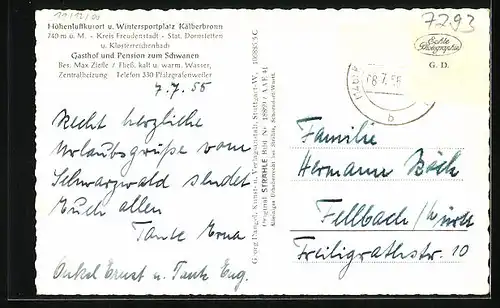 11/12/00
Höhenluftkurort u. Wintersportplatz Kälberbronn
740 m ü. M. - Kreis Freudenstadt - Stat. Dornstetten
u. Klosterreichenbach
Gasthof und Pension zum Schwanen
Bes. Max Ziefle / Fließ. kalt u. warm. Wasser,
Zentralheizung Telefon 330 Pfalzgrafenweiler
7.7.55
Recht herzliche
Urlaubsgrüße vom
Schwarzwald sendet
Euch allen
Tante Erna
Onkel Ernst u. Tante Eug.
Georg Dangel, Kunst- u. Verlagsanstalt, Stuttgart-W.
Original STRÄHLE Bild Nr.
7293
Echte Photographie
G. D.
8.7.55
b
Familie
Hermann Böck
Fellbach/Württ
Freiligrathstr. 10